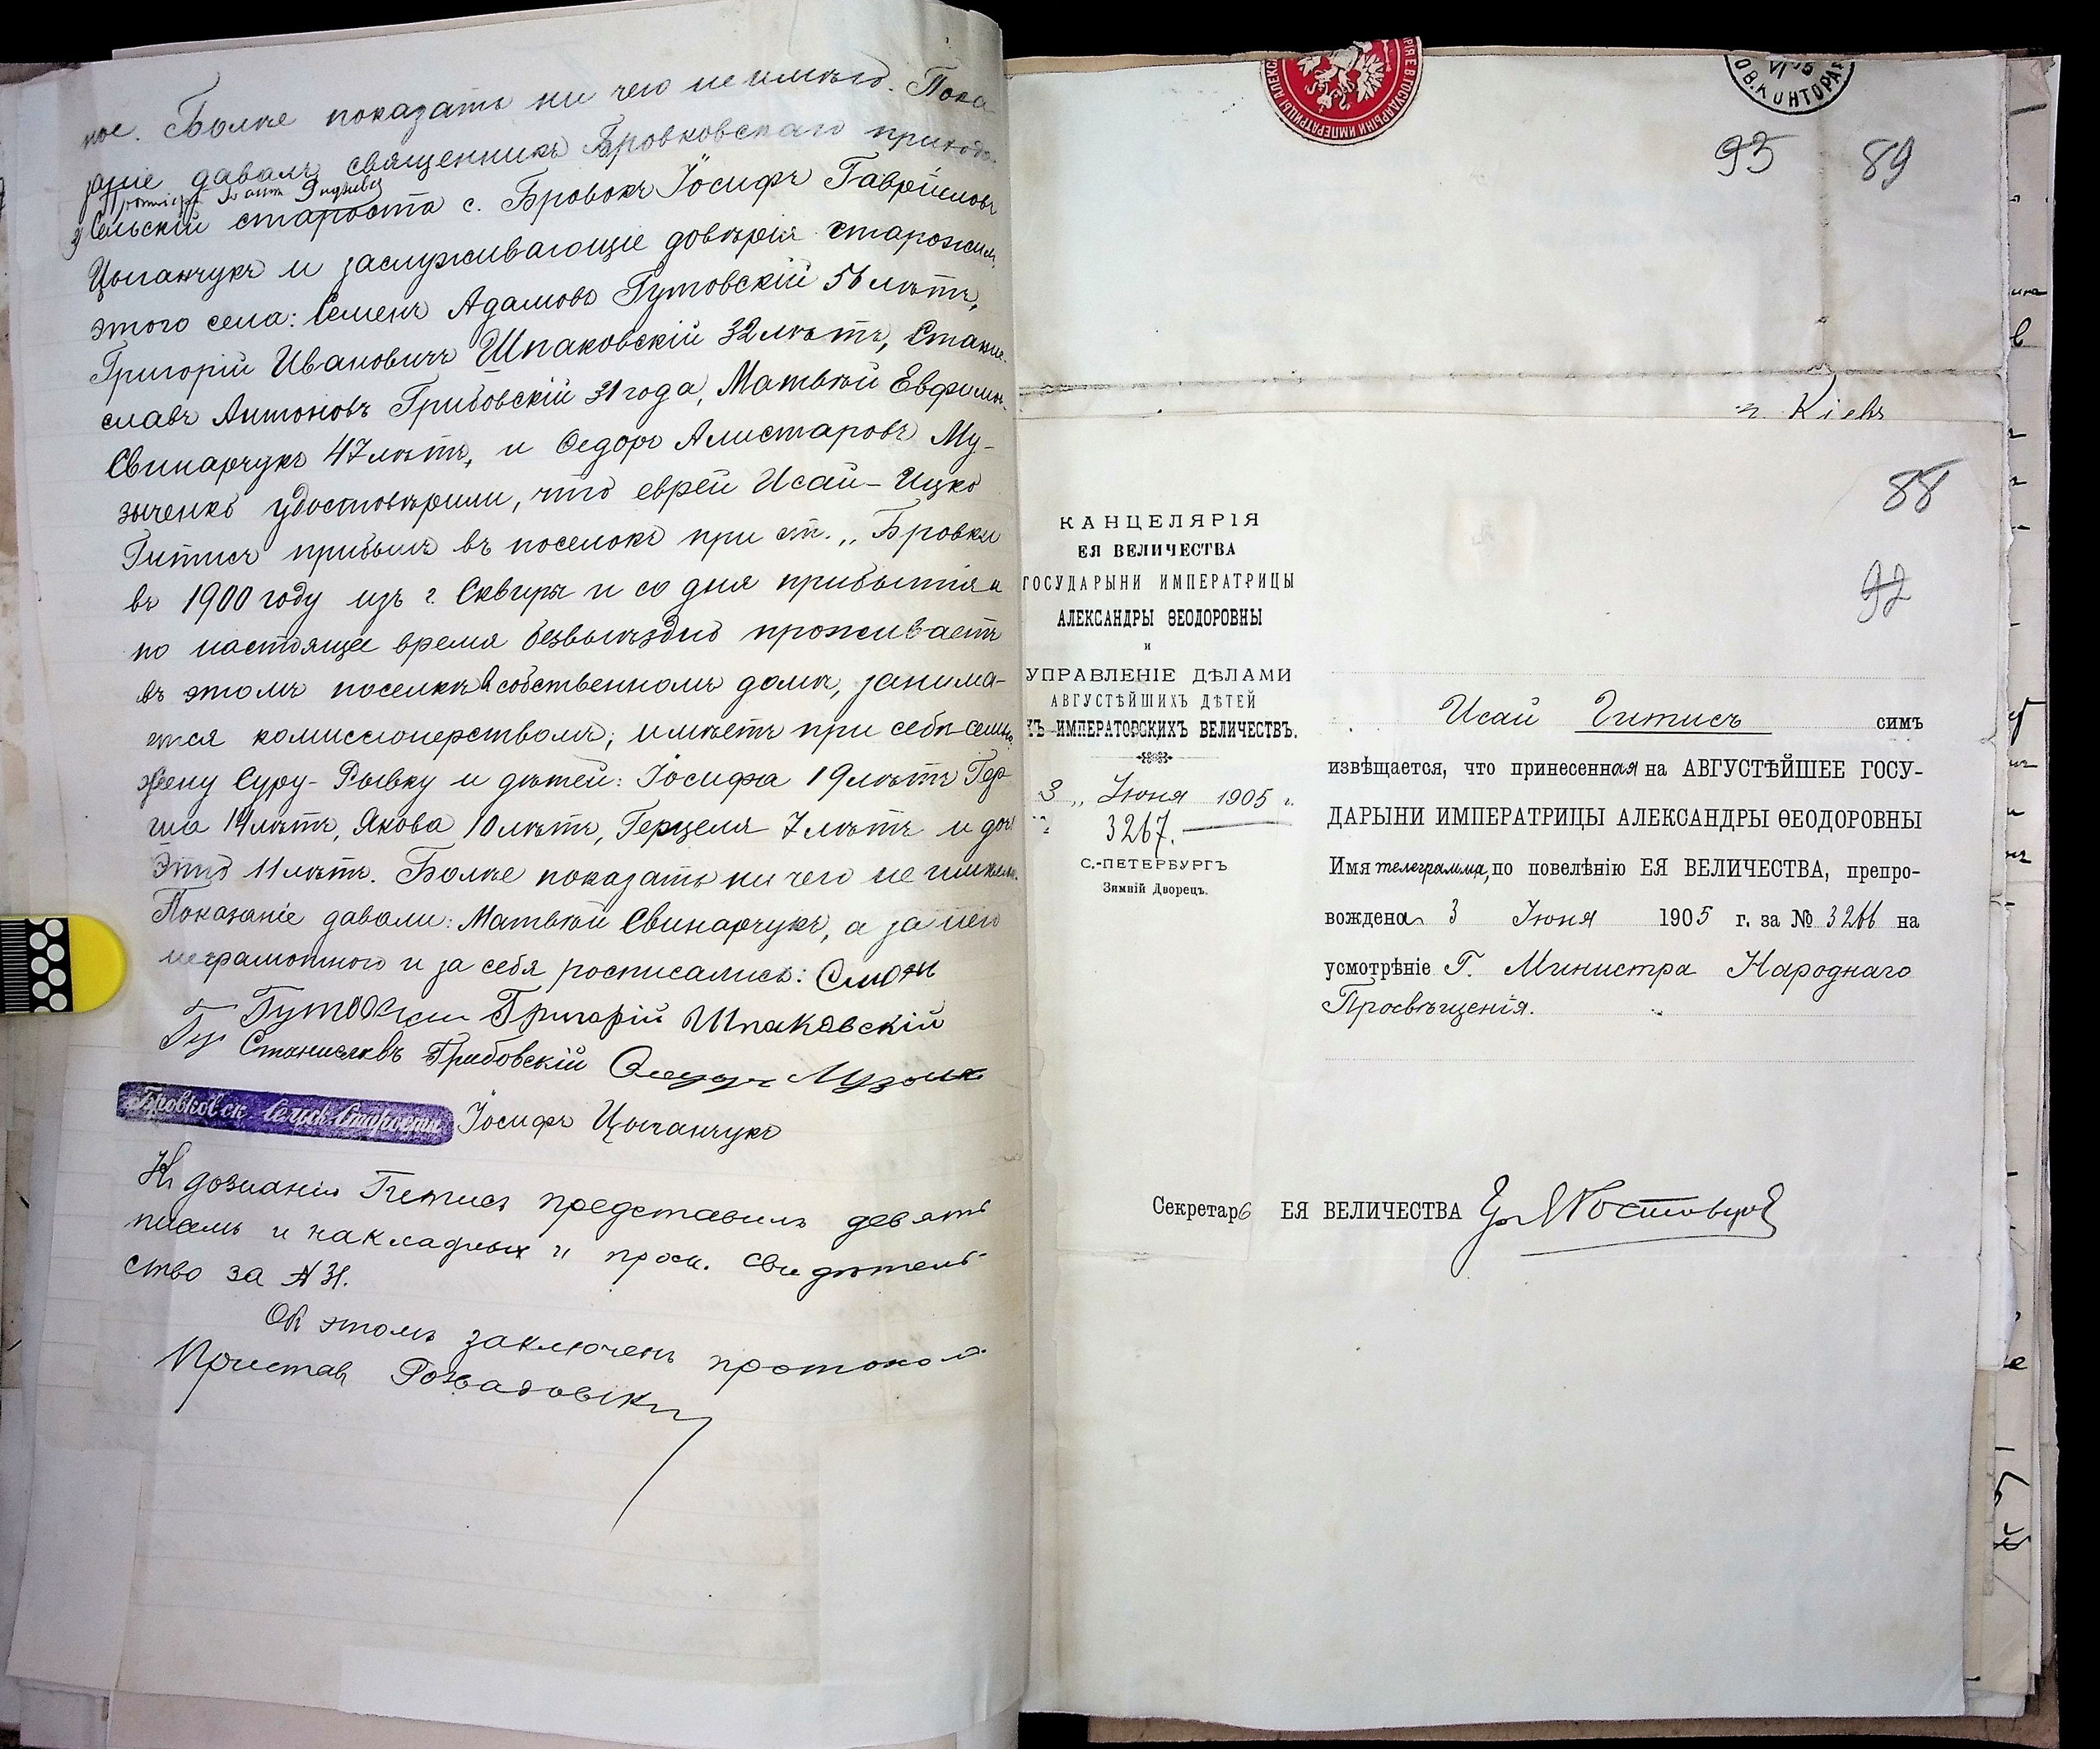 ное. Болѣе показать ни чего не имѣю. Пока-
заніе давалъ священникъ Бровковскаго прихода
Сельскій староста с. Бровокъ Іосифъ Гавріиловъ
Цыганчукъ и заслуживающіе довѣрія старожилы
этого села: Семенъ Адамовъ Гутовскій 56 лѣтъ,
Григорій Ивановичъ Шпаковскій 32 лѣтъ, Стани-
славъ Антоновъ Грибовскій 31 года, Матвѣй Евфимов
Свинарчукъ 47 лѣтъ, и Ѳедоръ Алистаровъ Му-
зыченко удостовѣрили, что еврей Исай-Ицко
Гитисъ прибылъ въ поселокъ при ст. „Бровки
въ 1900 году изъ г. Сквиры и со дня прибытія и
по настоящее время безвыѣздно проживаетъ
въ этомъ поселкѣ в собственномъ домѣ, занима-
ется комиссіонерствомъ; имѣетъ при себѣ семью
жену Суру-Рывку и дѣтей: Іосифа 19 лѣтъ Гер-
ша 14 лѣтъ, Якова 10 лѣтъ, Герцеля 7 лѣтъ и доч
11 лѣтъ. Болѣе показать ни чего не имѣем.
Показаніе давали: Матвѣй Свинарчукъ, а за него
неграмотного и за себя росписались: Смѣнъ
Гутовски Григорій Шпаковскій
Станиславъ Грибовскій Ѳедоръ Музыч
Бровковск. Сельск. Староста Іосифъ Цыганчукъ
К дознанію Гитисъ представилъ девять
писемъ и накладныхъ и пром. свидѣтель-
ство за № 31.
Об этомъ заключенъ протоколъ
Приставъ
ОВ. КОНТОРА
93 89
г. Кіевъ
88
92
КАНЦЕЛЯРІЯ
ЕЯ ВЕЛИЧЕСТВА
ГОСУДАРЫНИ ИМПЕРАТРИЦЫ
АЛЕКСАНДРЫ ѲЕОДОРОВНЫ
и
УПРАВЛЕНІЕ ДѢЛАМИ
АВГУСТѢЙШИХЪ ДѢТЕЙ
ХЪ ИМПЕРАТОРСКИХЪ ВЕЛИЧЕСТВЪ.
3 „ Іюня 1905 г.
3267.
С.-ПЕТЕРБУРГЪ
Зимній Дворецъ.
Исай Гитисъ симъ
извѣщается, что принесенная на АВГУСТѢЙШЕЕ ГОСУ-
ДАРЫНИ ИМПЕРАТРИЦЫ АЛЕКСАНДРЫ ѲЕОДОРОВНЫ
Имя телеграмма, по повелѣнію ЕЯ ВЕЛИЧЕСТВА, препро-
вождена 3 Іюня 1905 г. за № 3266 на
усмотрѣніе Г. Министра Народнаго
Просвѣщенія.
Секретарь ЕЯ ВЕЛИЧЕСТВА Гр. Ростовцовъ